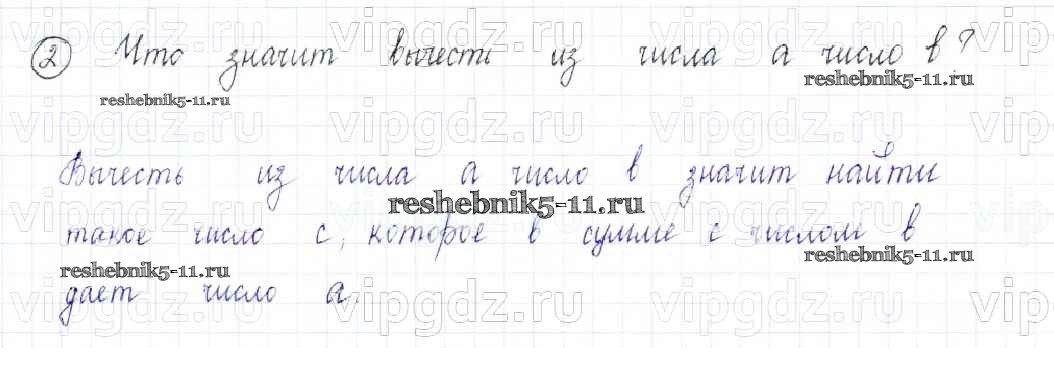 ② Что значит вычесть из числа а число в?
reshebnik5-11.ru
reshebnik5-11.ru
vipgdz.ru vipgdz.ru vipgdz.ru vip
Вычесть из числа а число в значит найти
reshebnik5-11.ru
такое число с, которое в сумме с числом в
reshebnik5-11.ru
reshebnik5-11.ru
дает число а.
vipgdz.ru vipgdz.ru vipgdz.ru vip